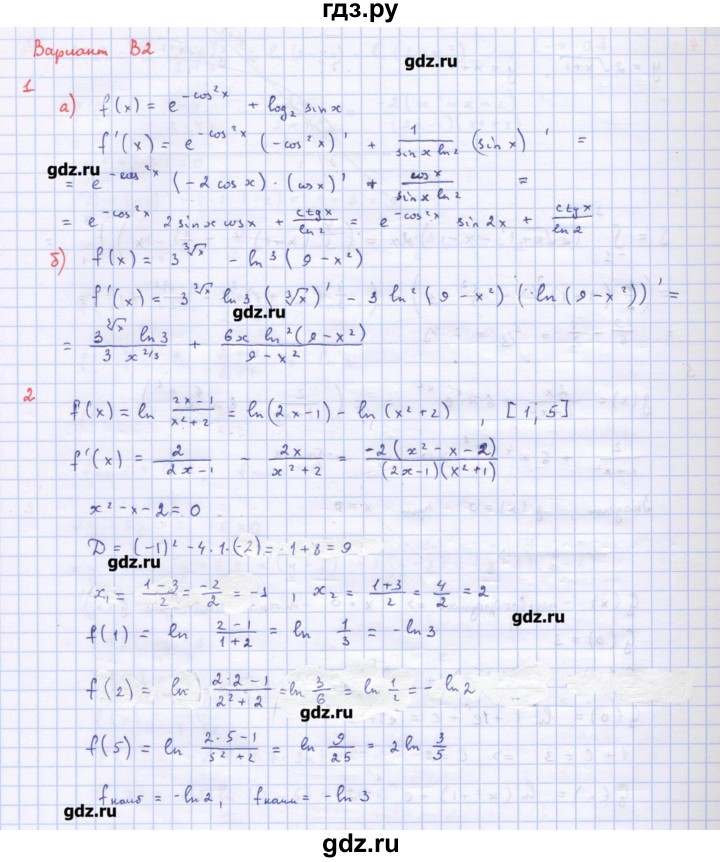 гдз.ру
Вариант В2
gdz.ru
1
а) f(x) = e^{-cos²x} + log₂ sin x
f'(x) = e^{-cos²x} (-cos²x)' + \frac{1}{sin x ln 2} (sin x)' =
gdz.ru
= e^{-cos²x} (-2 cos x) · (cos x)' + \frac{cos x}{sin x ln 2} =
= e^{-cos²x} 2 sin x cos x + \frac{ctg x}{ln 2} = e^{-cos²x} sin 2x + \frac{ctg x}{ln 2}
б) f(x) = 3^{∛x} - ln³(9 - x²)
f'(x) = 3^{∛x} ln 3 (∛x)' - 3 ln²(9 - x²) (ln(9 - x²))' =
gdz.ru
= \frac{3^{∛x} ln 3}{3 x^{2/3}} + \frac{6x ln²(9 - x²)}{9 - x²}
2
f(x) = ln \frac{2x - 1}{x² + 2} = ln(2x - 1) - ln(x² + 2) , [1, 5]
f'(x) = \frac{2}{2x - 1} - \frac{2x}{x² + 2} = \frac{-2(x² - x - 2)}{(2x - 1)(x² + 1)}
x² - x - 2 = 0
D = (-1)² - 4·1·(-2) = 1 + 8 = 9
gdz.ru
x₁ = \frac{1 - 3}{2} = \frac{-2}{2} = -1 , x₂ = \frac{1 + 3}{2} = \frac{4}{2} = 2
gdz.ru
f(1) = ln \frac{2 - 1}{1 + 2} = ln \frac{1}{3} = - ln 3
f(2) = ln \frac{2·2 - 1}{2² + 2} = ln \frac{3}{6} = ln \frac{1}{2} = - ln 2
gdz.ru
f(5) = ln \frac{2·5 - 1}{5² + 2} = ln \frac{9}{25} = 2 ln \frac{3}{5}
f наиб = - ln 2, f наим = - ln 3
gdz.ru
gdz.ru